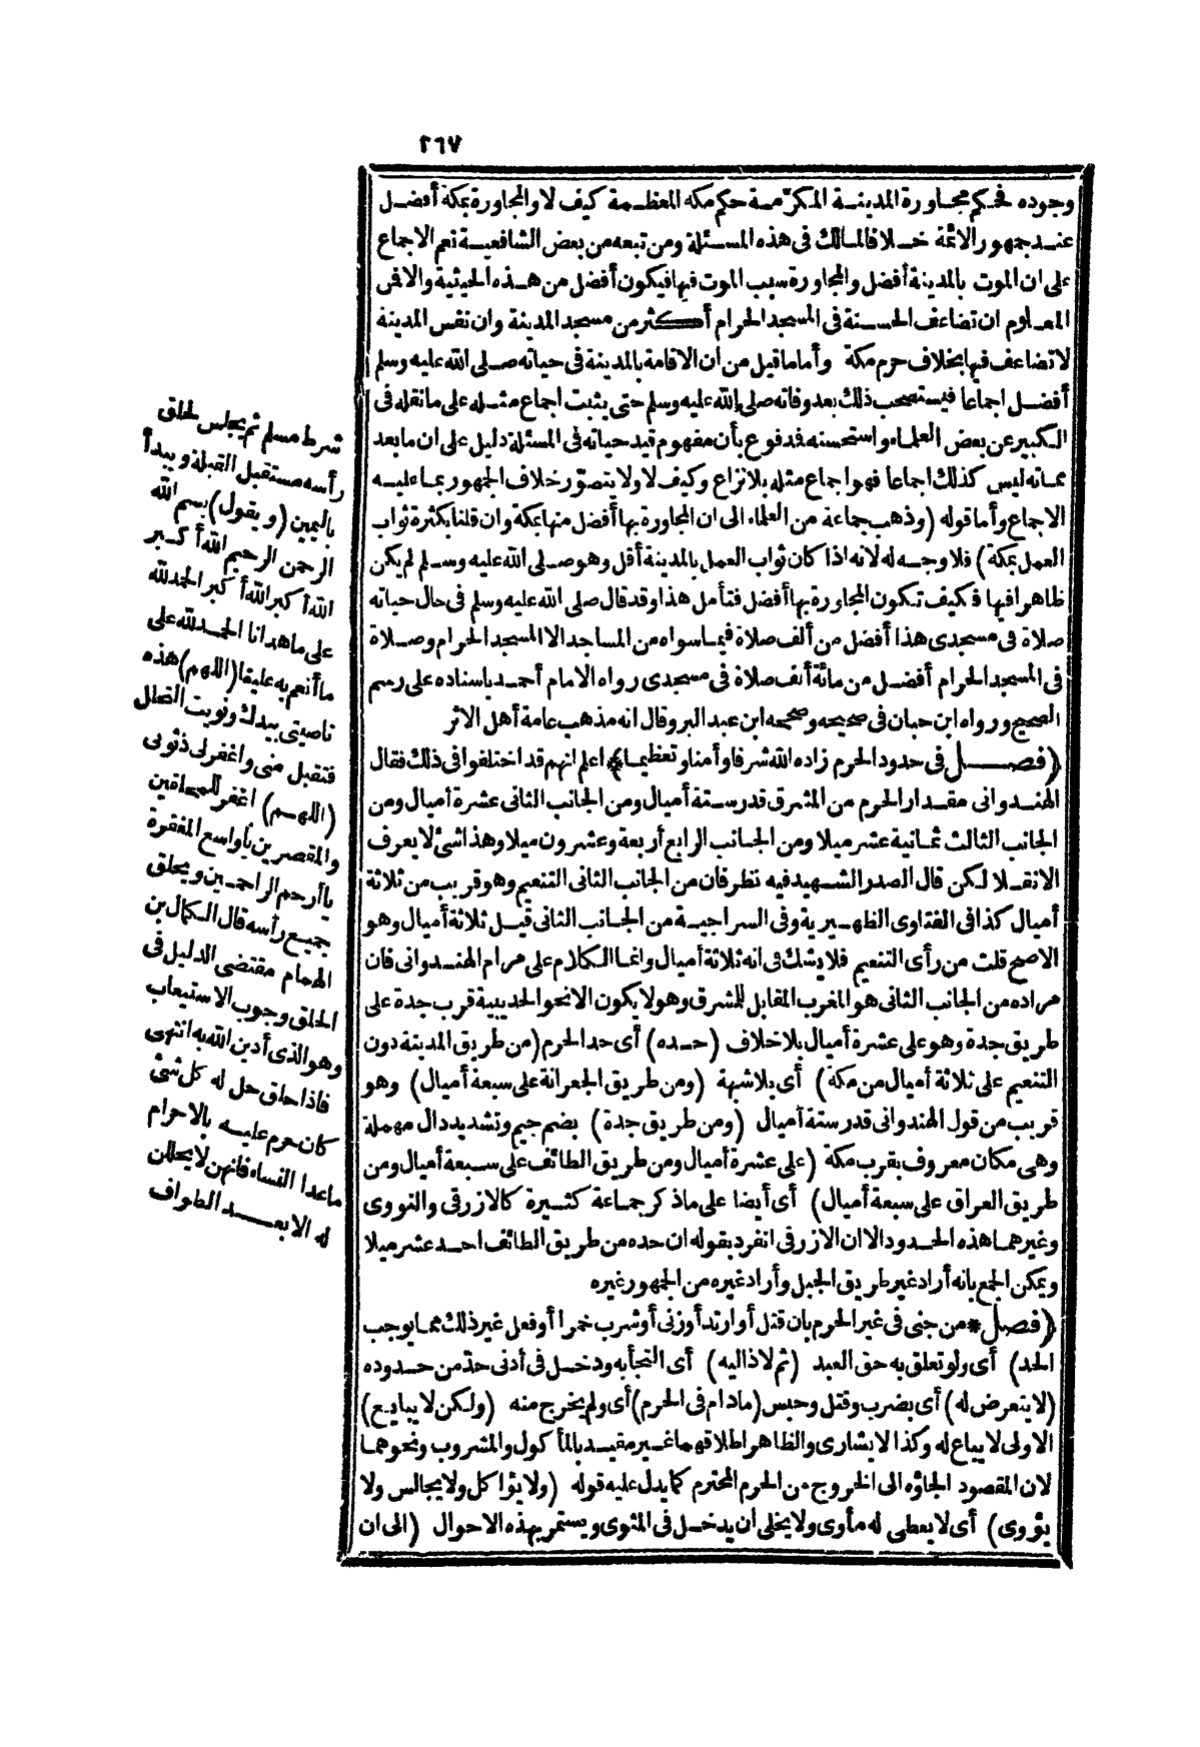 ٢٦٧
وجوده فحكم مجاورة المدينة المكرّمة حكم مكة المعظمة كيف لا والمجاورة بمكة أفضل
عند جمهور الائمة خلافا لمالك فى هذه المسئلة ومن تبعه من بعض الشافعية نعم الاجماع
على ان الموت بالمدينة أفضل والمجاورة سبب الموت فيها فيكون أفضل من هذه الحيثية والا فمن
المعلوم ان تضاعف الحسنة فى المسجد الحرام أكثر من مسجد المدينة وان نفس المدينة
لا تضاعف فيها بخلاف حرم مكة وأما ما قيل من ان الاقامة بالمدينة فى حياته صلى الله عليه وسلم
أفضل اجماعا فيستصحب ذلك بعد وفاته صلى الله عليه وسلم حتى يثبت اجماع مثله على ما نقله فى
الكبير عن بعض العلماء واستحسنه فدفوع بأن مفهوم قيد حياته فى المسئلة دليل على ان ما بعد
مماته ليس كذلك اجماعا فهو اجماع مثله بلا نزاع وكيف لا ولا يتصوّر خلاف الجمهور بما عليه
الاجماع وأما قوله (وذهب جماعة من العلماء الى ان المجاورة بها أفضل منها بمكة وان قلنا بكثرة ثواب
العمل بمكة) فلا وجه له لانه اذا كان ثواب العمل بالمدينة أقل وهو صلى الله عليه وسلم لم يكن
ظاهرا فيها فكيف تكون المجاورة بها أفضل فتأمل هذا وقد قال صلى الله عليه وسلم فى حال حياته
صلاة فى مسجدى هذا أفضل من ألف صلاة فيما سواه من المساجد الا المسجد الحرام وصلاة
فى المسجد الحرام أفضل من مائة ألف صلاة فى مسجدى رواه الامام أحمد باسناده على رسم
الصحيح ورواه ابن حبان فى صحيحه وصححه ابن عبد البر وقال انه مذهب عامة أهل الاثر
(فصل فى حدود الحرم زاده الله شرفا وأمنا وتعظيما) اعلم انهم قد اختلفوا فى ذلك فقال
الهندوانى مقدار الحرم من المشرق قدر ستة أميال ومن الجانب الثانى عشرة أميال ومن
الجانب الثالث ثمانية عشر ميلا ومن الجانب الرابع أربعة وعشرون ميلا وهذا شئ لا يعرف
الا نقلا لكن قال الصدر الشهيد فيه نظر فان من الجانب الثانى التنعيم وهو قريب من ثلاثة
أميال كذا فى الفتاوى الظهيرية وفى السراجية من الجانب الثانى قيل ثلاثة أميال وهو
الاصح قلت من رأى التنعيم فلا يشك فى انه ثلاثة أميال وانما الكلام على مرام الهندوانى فان
مراده من الجانب الثانى هو المغرب المقابل للمشرق وهو لا يكون الا نحو الحديبية قرب جدة على
طريق جدة وهو على عشرة أميال بلا خلاف (حده) أى حد الحرم (من طريق المدينة دون
التنعيم على ثلاثة أميال من مكة) أى بلا شبهة (ومن طريق الجعرانة على سبعة أميال) وهو
قريب من قول الهندوانى قدر ستة أميال (ومن طريق جدة) بضم جيم وتشديد دال مهملة
وهى مكان معروف بقرب مكة (على عشرة أميال ومن طريق الطائف على سبعة أميال ومن
طريق العراق على سبعة أميال) أى أيضا على ما ذكر جماعة كثيرة كالازرقى والنووى
وغيرهما هذه الحدود الا ان الازرقى انفرد بقوله ان حده من طريق الطائف احد عشر ميلا
ويمكن الجمع بانه أراد غير طريق الجبل وأراد غيره من الجمهور غيره
(فصل * من جنى فى غير الحرم بان قتل أو ارتد أو زنى أو شرب خمرا أو فعل غير ذلك مما يوجب
الحد) أى ولو تعلق به حق العبد (ثم لاذ اليه) أى التجأ به ودخل فى أدنى حدّ من حدوده
(لا يتعرض له) أى بضرب وقتل وحبس (مادام فى الحرم) أى ولم يخرج منه (ولكن لا يبايع)
الاولى لا يباع له وكذا لا يشارى والظاهر اطلاقهما غير مقيد بالمأكول والمشروب ونحوهما
لان المقصود الجاؤه الى الخروج من الحرم المحترم كما يدل عليه قوله (ولا يؤاكل ولا يجالس ولا
يؤوى) أى لا يعطى له مأوى ولا يخلى أن يدخل فى المثوى ويستمر بهذه الاحوال (الى ان
شرط مسلم ثم يجلس لحلق
رأسه مستقبل القبلة ويبدأ
باليمين (ويقول) بسم الله
الرحمن الرحيم الله أكبر
الله أكبر الله أكبر الحمد لله
على ما هدانا الحمد لله على
ما أنعم به علينا (اللهم) هذه
ناصيتى بيدك ونويت التحلل
فتقبل منى واغفر لى ذنوبى
(اللهم) اغفر للمحلقين
والمقصرين يا واسع المغفرة
يا أرحم الراحمين ويحلق
جميع رأسه قال الكمال بن
الهمام مقتضى الدليل فى
الحلق وجوب الاستيعاب
وهو الذى أدين الله به انتهى
فاذا حلق حل له كل شئ
كان حرم عليه بالاحرام
ماعدا النساء فانهن لا يحللن
له الا بعد الطواف